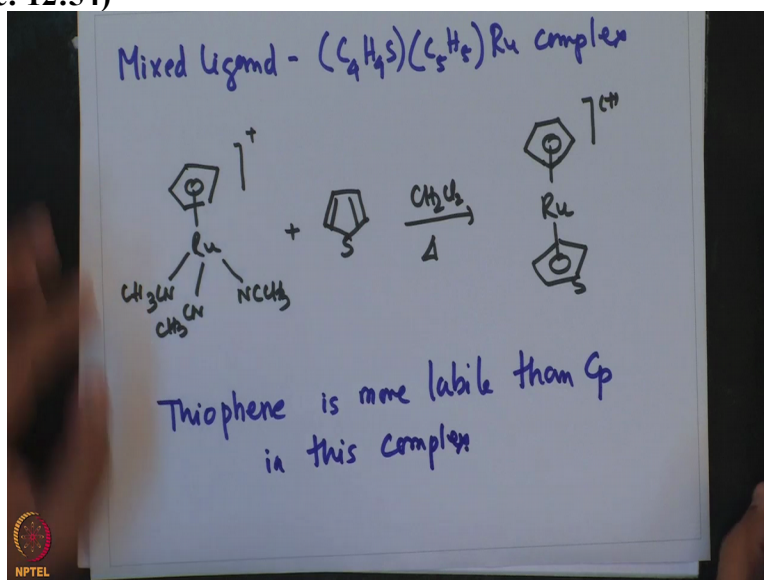 c. 12:34)
Mixed ligand - (C4H4S)(C5H5) Ru complex
]+
](+)
Ru
CH3CN
CH3CN
NCCH3
+
S
CH2Cl2
Δ
Ru
S
Thiophene is more labile than Cp
in this complex
NPTEL